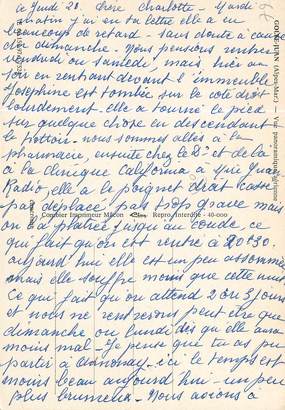 ce Jeudi 20. Chère Charlotte - Mardi
matin j'ai eu ta lettre elle a eu
beaucoup de retard - sans doute à cause
de dimanche. Nous pensions rentrer
vendredi ou samedi, mais hier au
soir en rentrant devant l'immeuble
Josephine est tombée sur le coté droit
lourdement - elle a tourné le pied
sur quelque chose en descendant
le trottoir - nous sommes allés à la
pharmacie, ensuite chez le Dr et de là
à la clinique California à Juan
Radio, elle a le poignet droit cassé
pas déplacé pas trop grave mais
on l'a platrée jusqu'au coude, ce
qui fait qu'on est rentré à 20h30.
aujourd'hui elle est un peu assommée
mais elle souffre moins que cette nuit
Ce qui fait qu'on attend 2 ou 3 jours
et nous ne rentrerons peut etre que
dimanche ou lundi dès qu'elle aura
moins mal - Je pense que tu as pu
partir à Annonay - ici le temps est
moins beau aujourd'hui - un peu
plus brumeux - Nous avions à
GOLFE-JUAN (Alpes-Mar.) - Vue panoramique aérienne
Combier Imprimeur Mâcon
Repro. Interdite - 40-000